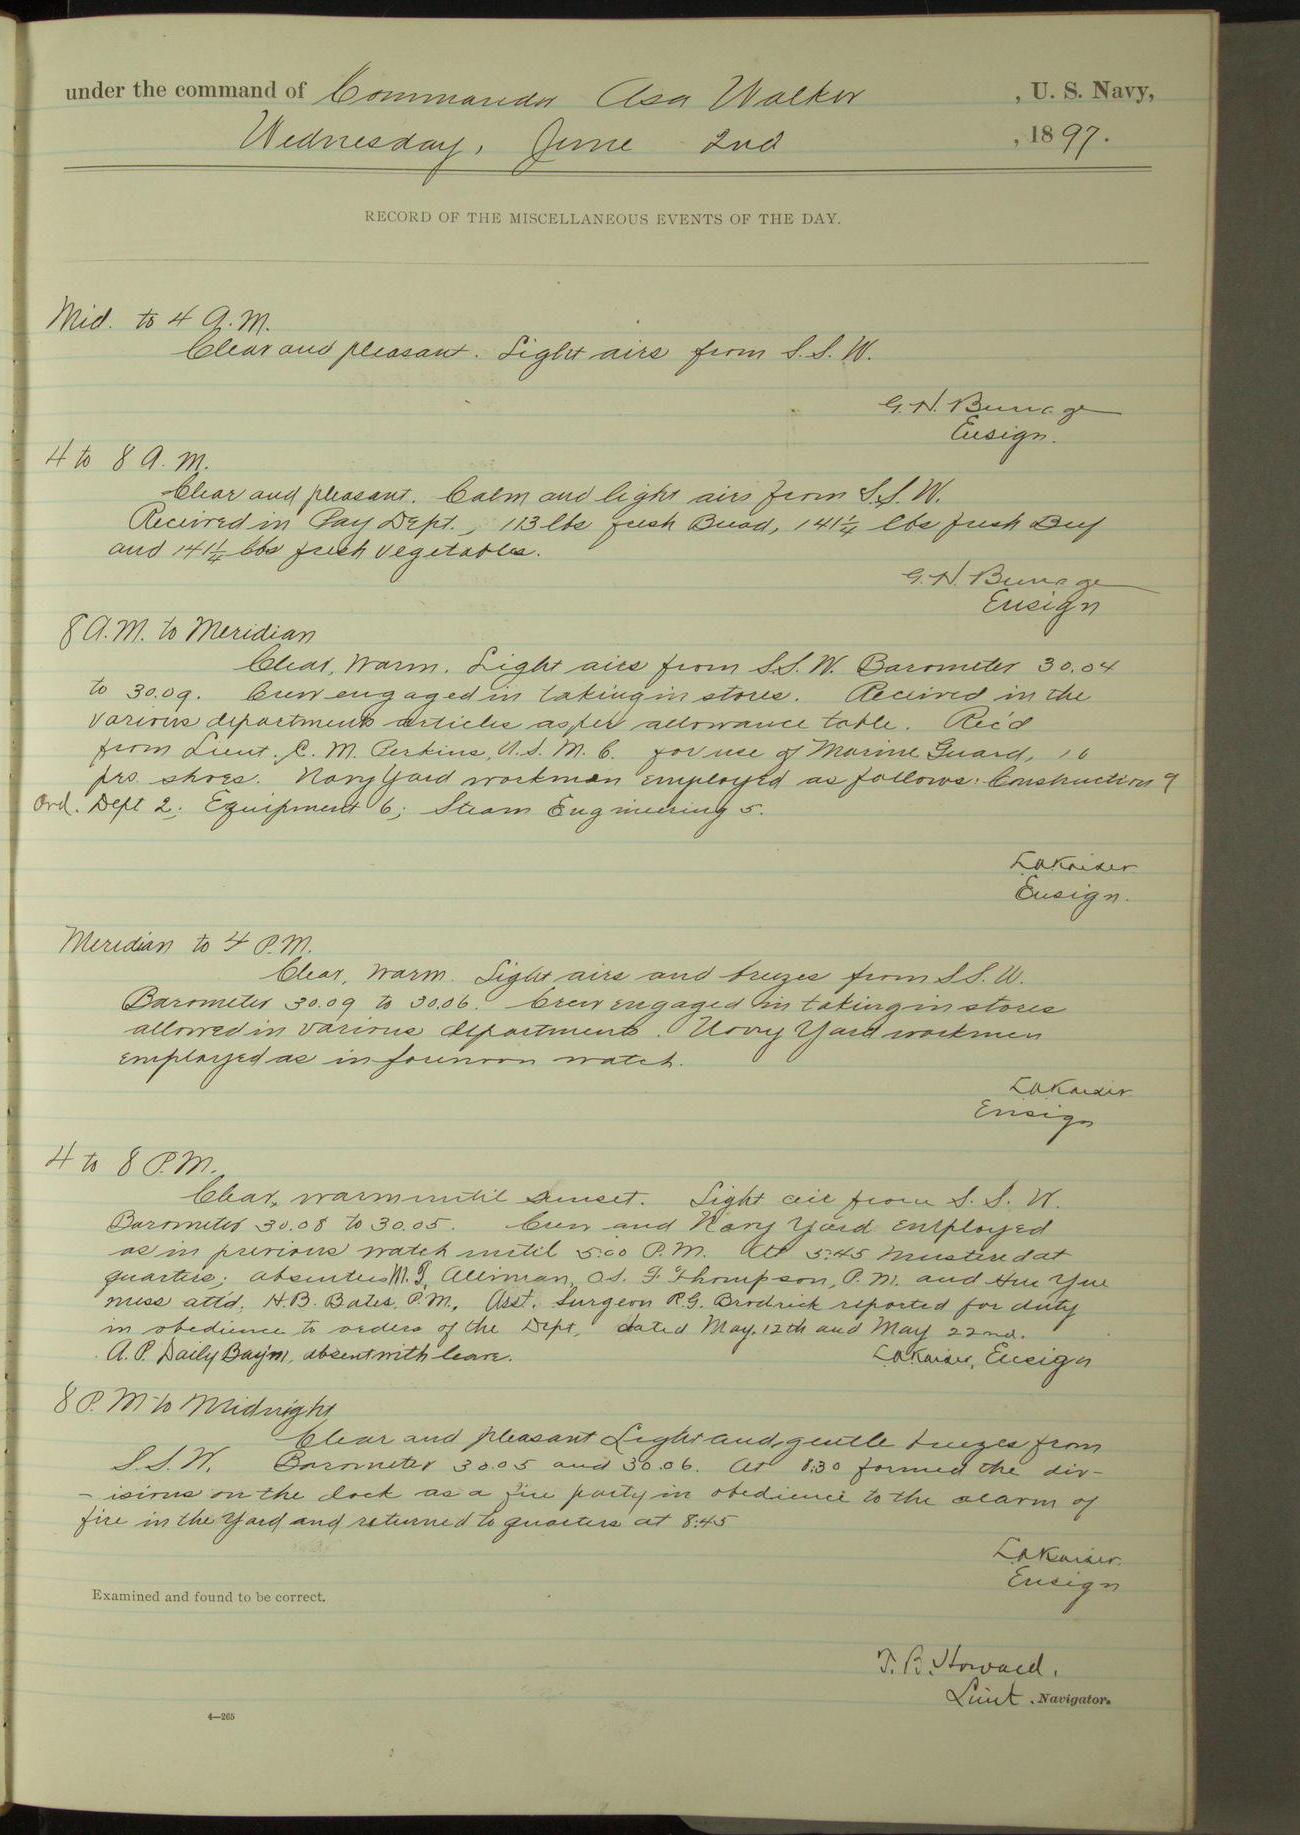 under the command of Commander Asa Walker, U. S. Navy,
Wednesday, June 2nd, 1897.
RECORD OF THE MISCELLANEOUS EVENTS OF THE DAY.
Mid. to 4 A.M.
Clear and pleasant. Light airs from S.S.W.
G.N. Burrage
Ensign.
4 to 8 A.M.
Clear and pleasant. Calm and light airs from S.S.W.
Received in Pay Dept., 113 lbs fresh Bread, 141 1/4 lbs fresh Beef
and 141 1/4 lbs fresh vegetables.
G.N. Burrage
Ensign
8 A.M. to Meridian
Clear, warm. Light airs from S.S.W. Barometer 30.04
to 30.09. Crew engaged in taking in stores. Received in the
various departments articles as per allowance table. Rec'd
from Lieut. C. M. Perkins, U.S.M.C. for use of Marine Guard, 16
prs. shoes. Navy Yard workmen employed as follows: Construction 9
Ord. Dept 2; Equipment 6; Steam Engineering 5.
L.A. Kaiser
Ensign.
Meridian to 4 P.M.
Clear, warm. Light airs and breezes from S.S.W.
Barometer 30.09 to 30.06. Crew engaged in taking in stores
allowed in various departments. Navy Yard workmen
employed as in forenoon watch.
L.A. Kaiser
Ensign
4 to 8 P.M.
Clear, warm until sunset. Light air from S.S.W.
Barometer 30.08 to 30.05. Crew and Navy Yard employed
as in previous watch until 5:00 P.M. At 5:45 mustered at
quarters; absentees M.T. O.S. F. Thompson, P.M. and
mess att'd, H.B. Bates, P.M. Asst. Surgeon R.G. Brodrick reported for duty
in obedience to orders of the Dept, dated May 12th and May 22nd.
A.P. Daily Bay'm, absent with leave. L.A. Kaiser, Ensign
8 P.M. to Midnight
Clear and pleasant Light and gentle breezes from
S.S.W. Barometer 30.05 and 30.06. At 8:30 formed the div-
-isions on the dock as a fire party in obedience to the alarm of
fire in the Yard and returned to quarters at 8:45
L.A. Kaiser
Ensign
Examined and found to be correct.
T.B. Howard.
Lieut. Navigator.
4—265